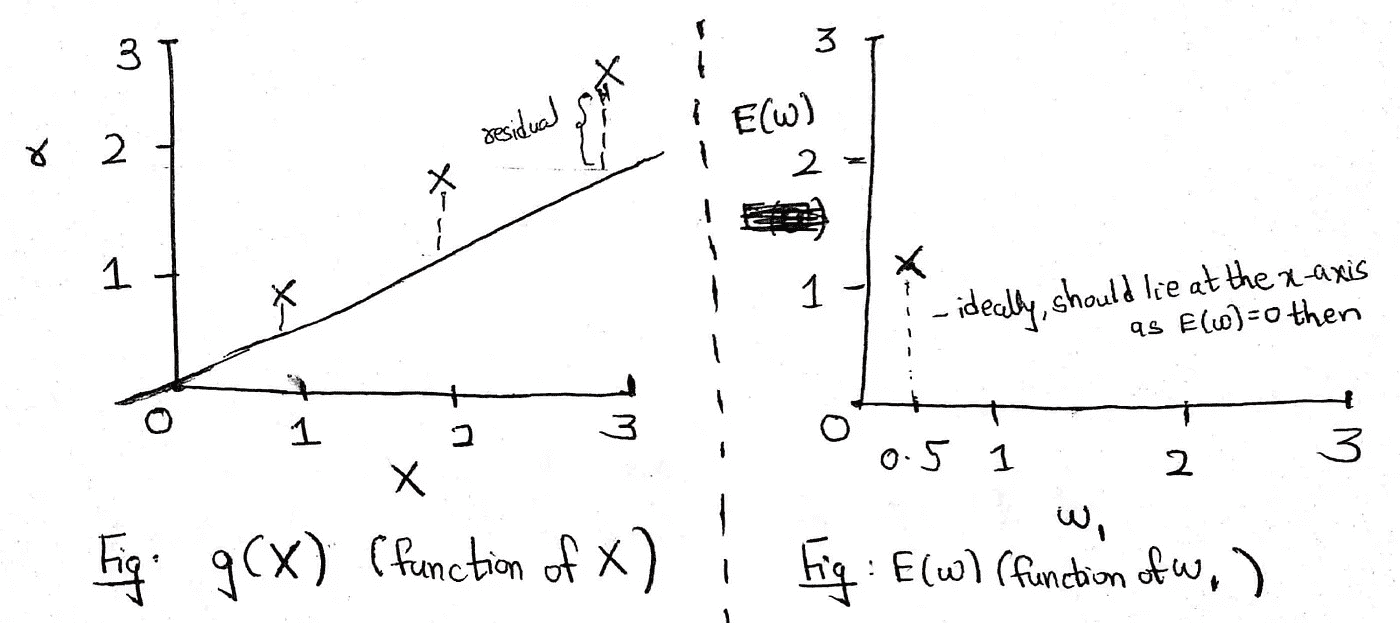 3
r
2
residual
1
0
1
2
3
X
Fig: g(X) (function of X)
3
E(w)
2
1
- ideally, should lie at the x-axis
as E(w)=0 then
0
0.5
1
2
3
w₁
Fig: E(w) (function of w₁)